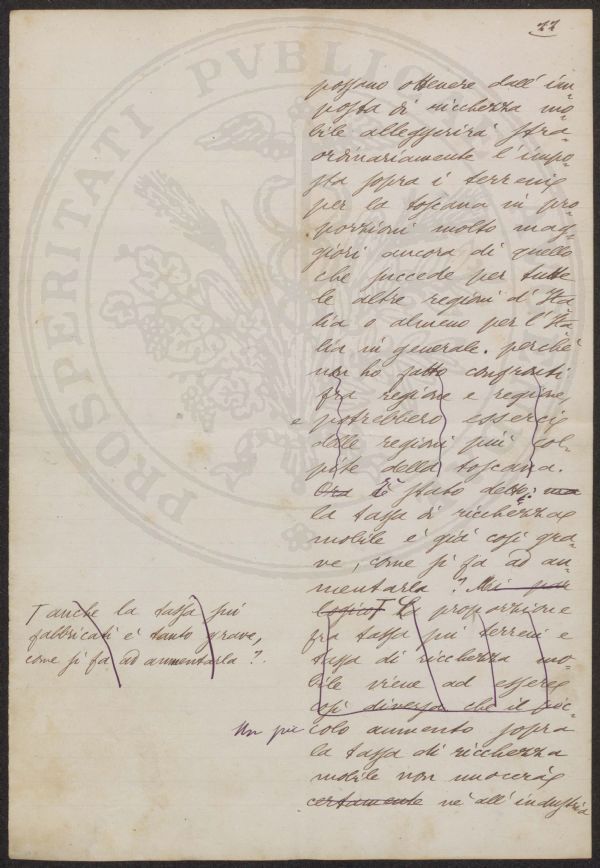 22
possano ottenere dall' im-
posta di ricchezza mo-
bile alleggerirà stra-
ordinariamente l'impo-
sta sopra i terreni
per la toscana in pro-
porzioni molto mag-
giori ancora di quello
che succede per tutte
le altre regioni d'Ita-
lia o almeno per l'Ita-
lia in generale. perché
non ho fatto confronti
fra regione e regione,
e potrebbero esserci
delle regioni più col-
pite della toscana.
Ora È stato detto: ma
la tassa di ricchezza
mobile è già così gra-
ve, come si fa ad au-
mentarla? Mi par
logico T La proporzione
fra tassa sui terreni e
tassa di ricchezza mo-
bile viene ad essere
così diversa che il pic-
Un pic colo aumento sopra
la tassa di ricchezza
mobile non nuocerà
certamente nè all'industria
T anche la tassa sui
fabbricati è tanto grave,
come si fa ad aumentarla?
PROSPERITATI PVBLIC